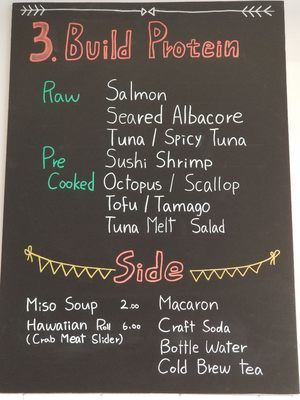 3. Build Protein
Raw Salmon
Seared Albacore
Tuna / Spicy Tuna
Pre Sushi Shrimp
Cooked Octopus / Scallop
Tofu / Tamago
Tuna Melt Salad
Side
Miso Soup 2.00
Hawaiian Roll 6.00
(Crab Meat Slider)
Macaron
Craft Soda
Bottle Water
Cold Brew tea